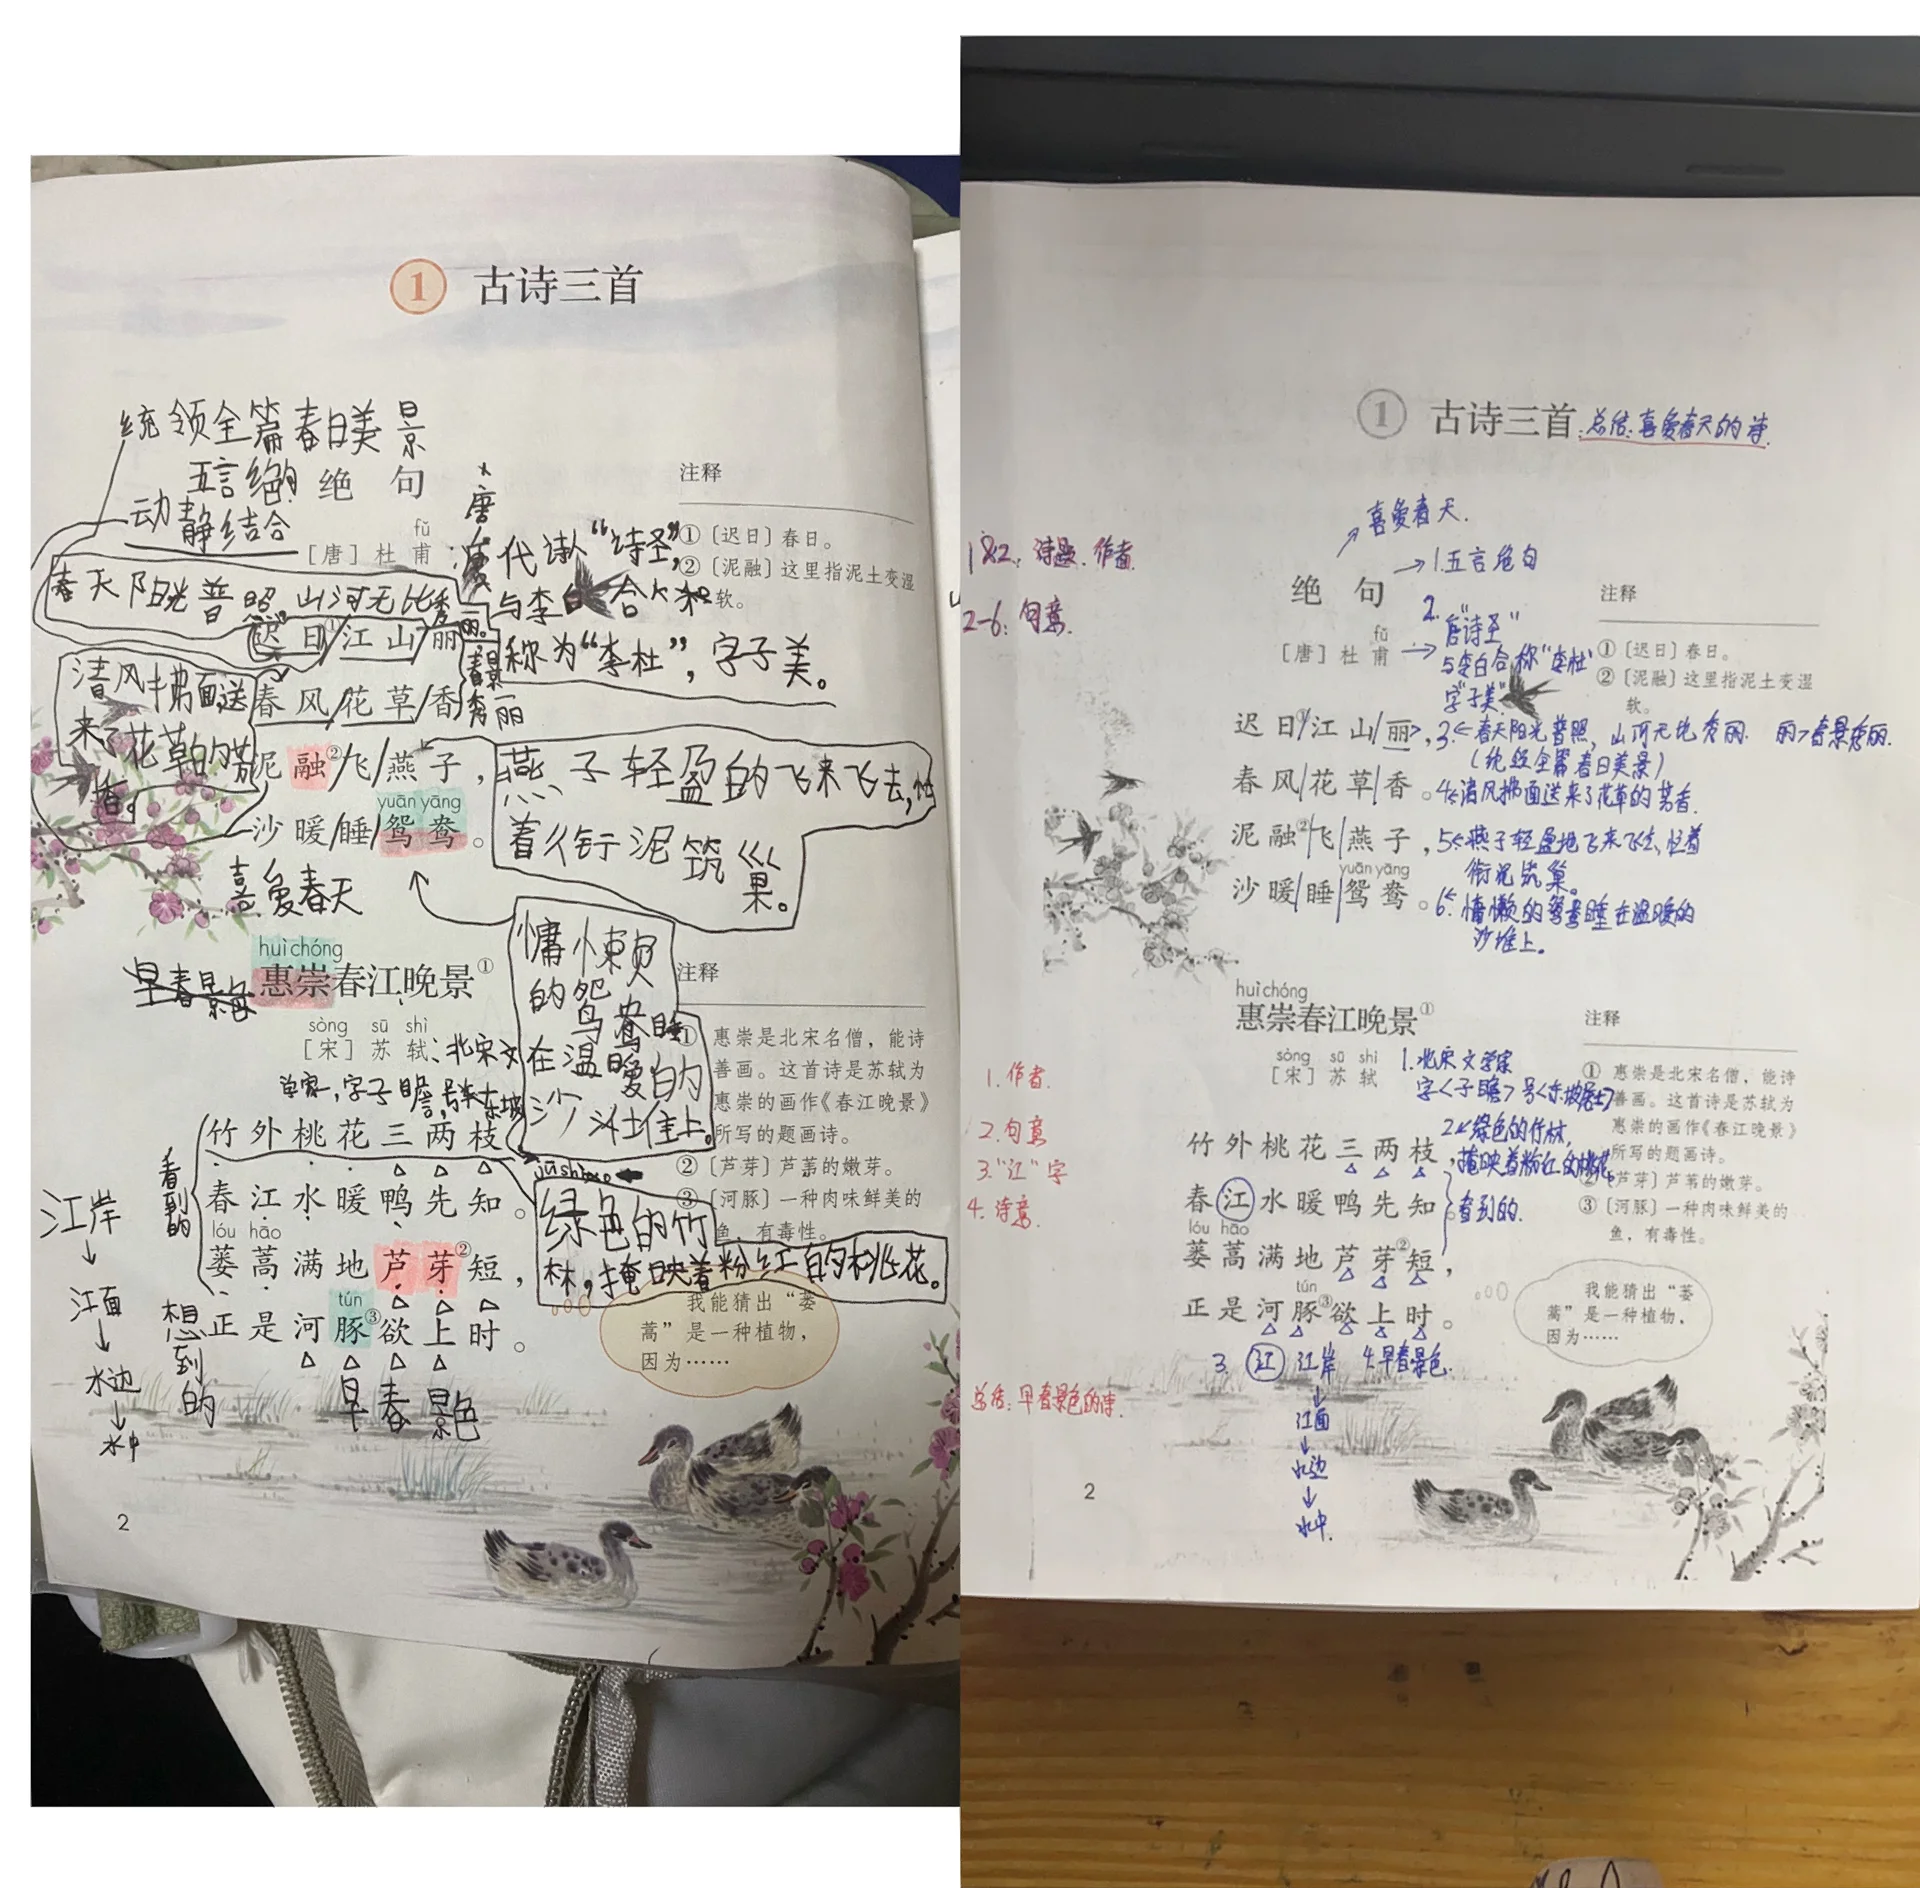 1 古诗三首
统领全篇春日美景
五言绝句 绝 句
动静结合
fǔ
[唐] 杜 甫
唐代诗人“诗圣”,
与李白合称
称为“李杜”,字子美。
注释
① [迟日] 春日。
② [泥融] 这里指泥土变湿
软。
春天阳光普照,山河无比秀丽。
迟 日/江 山/丽
春景秀丽
清风拂面送
来了花草的芳
香。
春 风/花 草/香
泥 融②/飞/燕 子,
yuān yāng
沙 暖/睡/鸳 鸯。
燕子轻盈的飞来飞去,忙
着衔泥筑巢。
喜爱春天
慵懒
的鸳鸯睡
在温暖的
沙堆上。
huì chóng
早春景
惠崇春江晚景①
sòng sū shì
[宋] 苏 轼
:北宋文
字子瞻,号东坡
注释
① 惠崇是北宋名僧,能诗
善画。这首诗是苏轼为
惠崇的画作《春江晚景》
所写的题画诗。
② [芦芽] 芦苇的嫩芽。
③ [河豚] 一种肉味鲜美的
鱼,有毒性。
竹 外 桃 花 三 两 枝
春 江 水 暖 鸭 先 知。
lóu hāo
蒌 蒿 满 地 芦 芽② 短,
tún
正 是 河 豚③ 欲 上 时。
看到的
想到的
绿色的竹
林,掩映着粉红的桃花。
江岸
↓
江面
↓
水边
↓
水中
早春景色
我能猜出“蒌
蒿”是一种植物,
因为……
2
1 古诗三首 :总结:喜爱春天的诗.
喜爱春天.
1&2:诗题.作者.
2-6:句意.
绝 句 →1.五言绝句
fǔ
[唐] 杜 甫 →
2.“唐诗圣”
与李白合称“李杜”
字“子美”
注释
① [迟日] 春日。
② [泥融] 这里指泥土变湿
软。
迟 日/江 山/丽, 3.春天阳光普照,山河无比秀丽. 丽>春景秀丽.
(统领全篇春日美景)
春 风/花 草/香。 4.清风拂面送来了花草的芳香.
泥 融②/飞/燕 子, 5.燕子轻盈地飞来飞去,忙着
衔泥筑巢。
yuān yāng
沙 暖/睡/鸳 鸯。 6.慵懒的鸳鸯睡在温暖的
沙堆上。
huì chóng
惠崇春江晚景①
sòng sū shì
[宋] 苏 轼
1.北宋文学家
字<子瞻> 号<东坡居士>
注释
① 惠崇是北宋名僧,能诗
善画。这首诗是苏轼为
惠崇的画作《春江晚景》
所写的题画诗。
② [芦芽] 芦苇的嫩芽。
③ [河豚] 一种肉味鲜美的
鱼,有毒性。
1.作者.
2.句意
3.“江”字
4.诗意.
总结:早春景色的诗.
2.绿色的竹林,
掩映着粉红的桃花
竹 外 桃 花 三 两 枝,
春 江 水 暖 鸭 先 知。
看到的.
lóu hāo
蒌 蒿 满 地 芦 芽② 短,
tún
正 是 河 豚③ 欲 上 时。
3.江 江岸 4.早春景色.
↓
江面
↓
水边
↓
水中.
我能猜出“蒌
蒿”是一种植物,
因为……
2